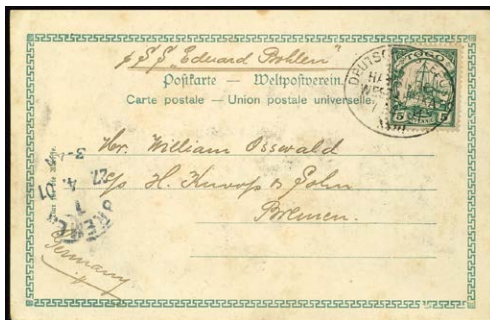 p S/S "Eduard Bohlen"
Postkarte — Weltpostverein.
Carte postale — Union postale universelle.
TOGO
5 5
Hr. William Osswald
c/o H. Knoop & Sohn
Bremen.
Germany
BREMEN
1
27. 4. 01
3-4 N